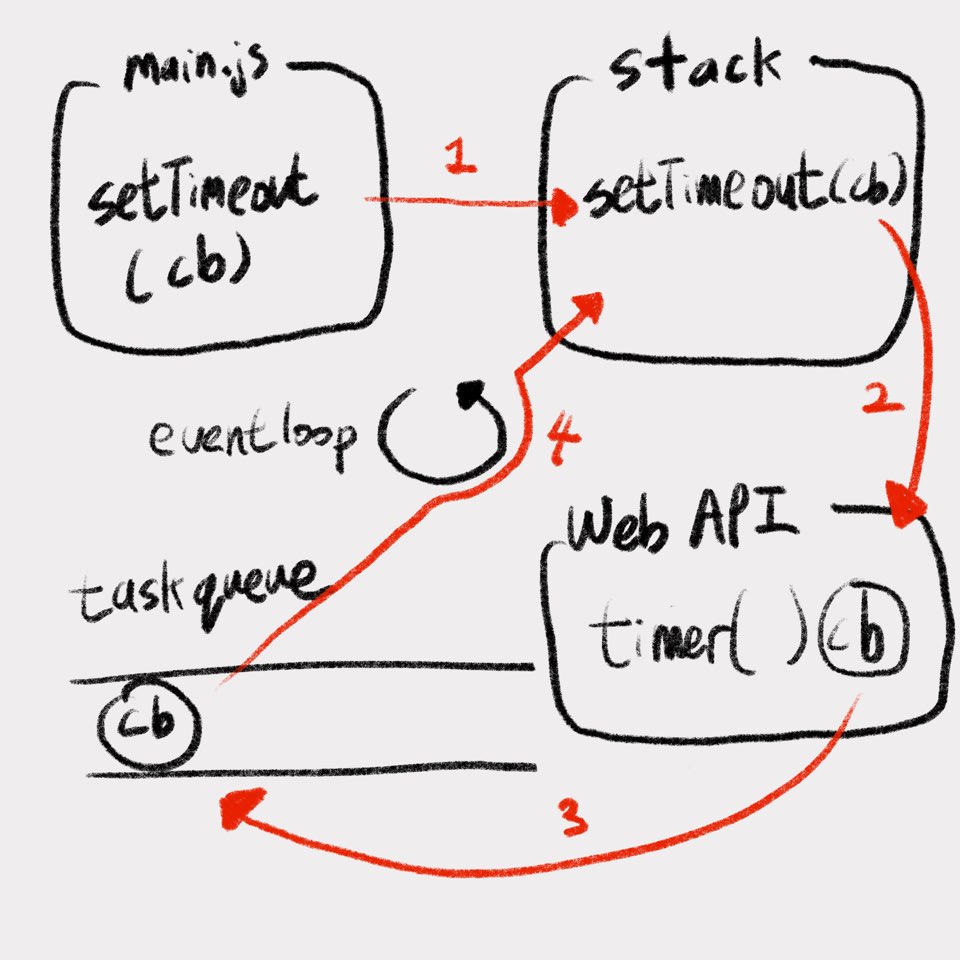 main.js
setTimeout
(cb)
1
stack
setTimeout(cb)
2
eventloop
4
Web API
timer( ) cb
taskqueue
cb
3